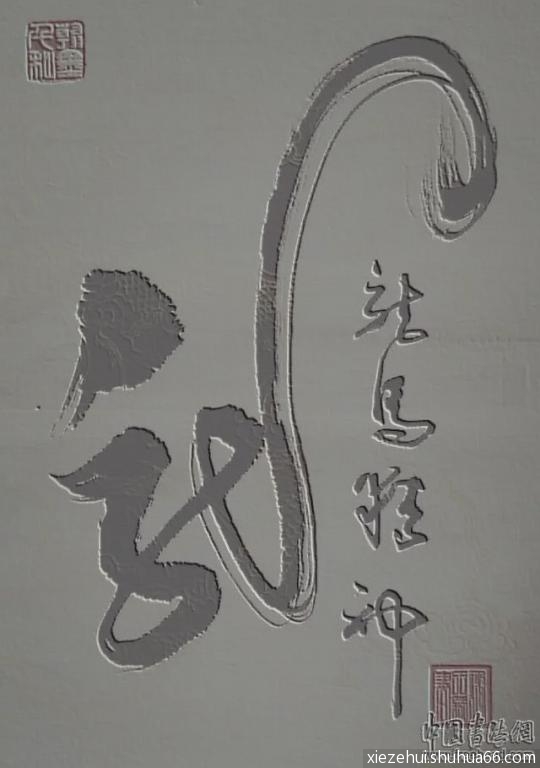 龍
龍馬精神
中国书法網
xiezehui.shuhua66.com